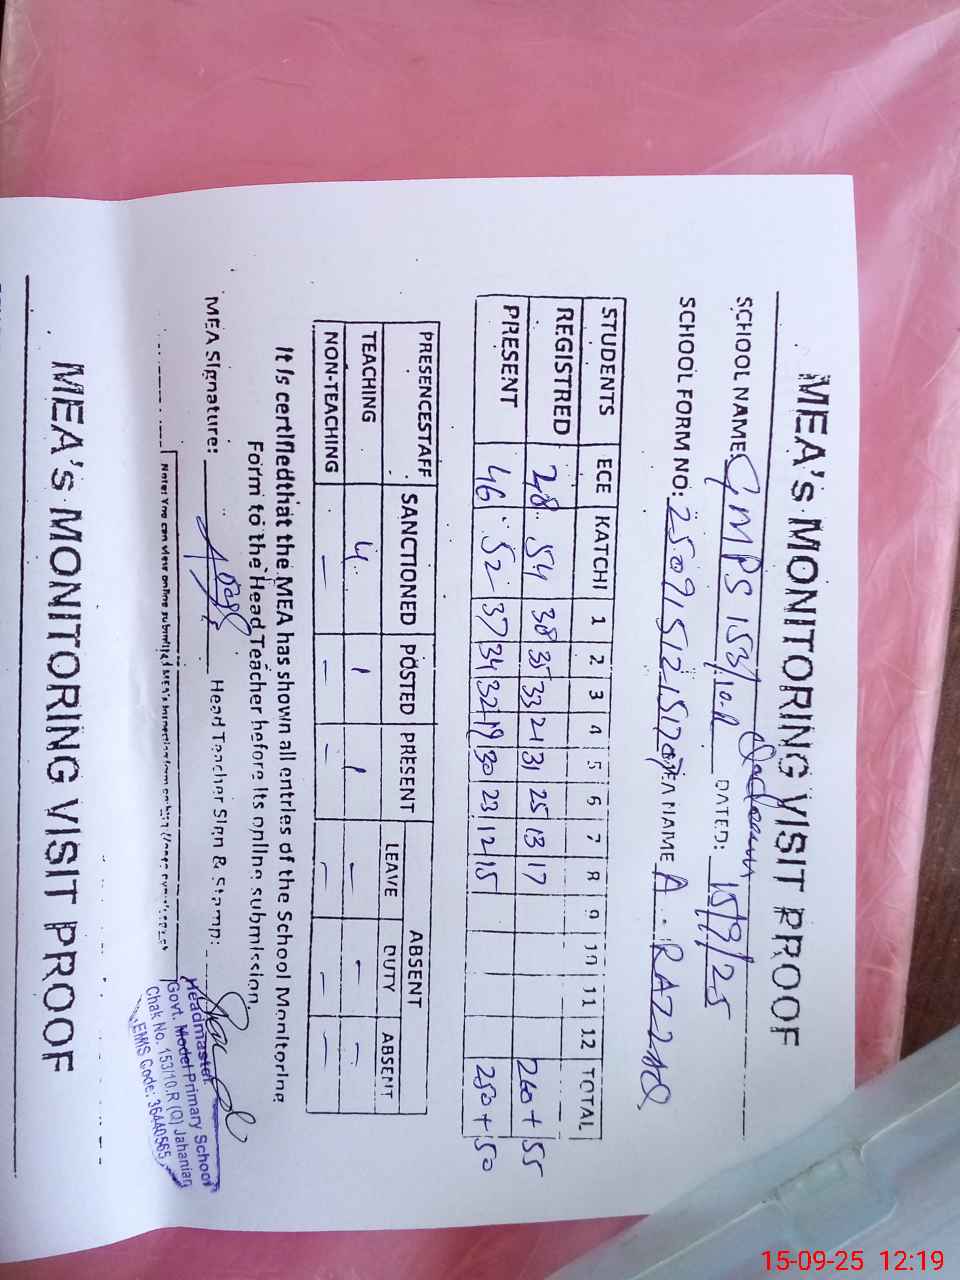 MEA's MONITORING VISIT PROOF
SCHOOL NAME: GMPS 153/10-R DATED: 15/9/25
SCHOOL FORM NO: A. RAZZAQ
STUDENTS ECE KATCHI 1 2 3 4 5 6 7 8 9 10 11 12 TOTAL
REGISTRED 28 54 38 35 33 21 31 25 13 17 260+55
PRESENT 46 52 37 34 32 19 30 23 12 15 250+50
PRESENCESTAFF SANCTIONED POSTED PRESENT ABSENT
LEAVE DUTY ABSENT
TEACHING 4 1 1 - - -
NON-TEACHING - - - - - -
It is certifiedthat the MEA has shown all entries of the School Monitoring
Form to the Head Teacher before its online submission.
MEA Signature: Head Teacher Sign & Stamp:
Headmaster
Govt. Model Primary School
Chak No. 153/10.R (Q) Jahanian
EMIS Code: 36440565
Note: You can view online submitted MEA's
MEA's MONITORING VISIT PROOF
15-09-25 12:19